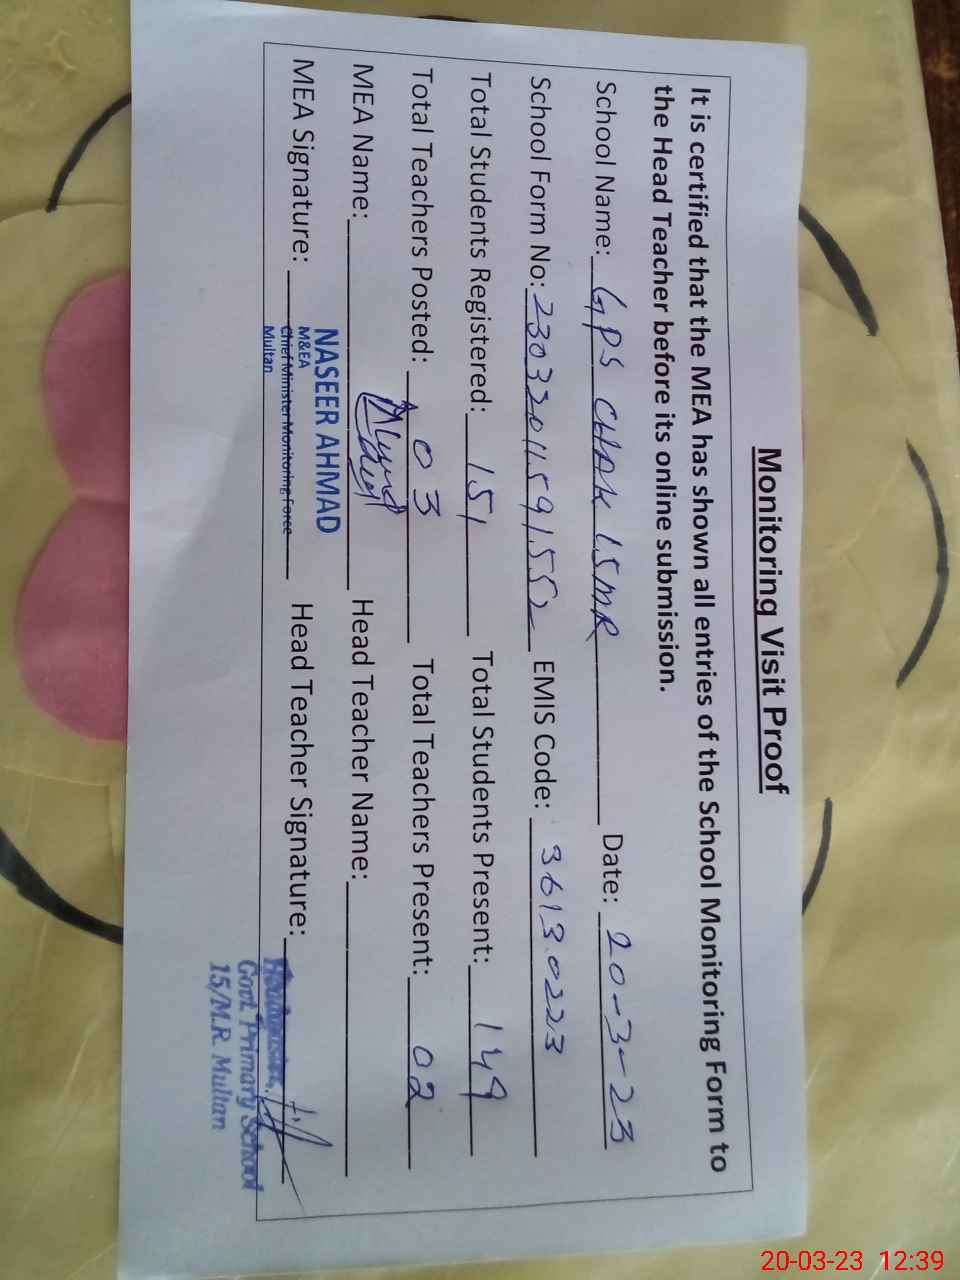 Monitoring Visit Proof
It is certified that the MEA has shown all entries of the School Monitoring Form to
the Head Teacher before its online submission.
School Name: GPS CHAK 15MR Date: 20-3-23
School Form No: 23032011591552 EMIS Code: 36130223
Total Students Registered: 151 Total Students Present: 149
Total Teachers Posted: 03 Total Teachers Present: 02
MEA Name: Head Teacher Name:
NASEER AHMAD
M&EA
Chief Minister Monitoring Force
Multan
MEA Signature: Head Teacher Signature:
Govt. Primary School
15/M.R. Multan
20-03-23 12:39